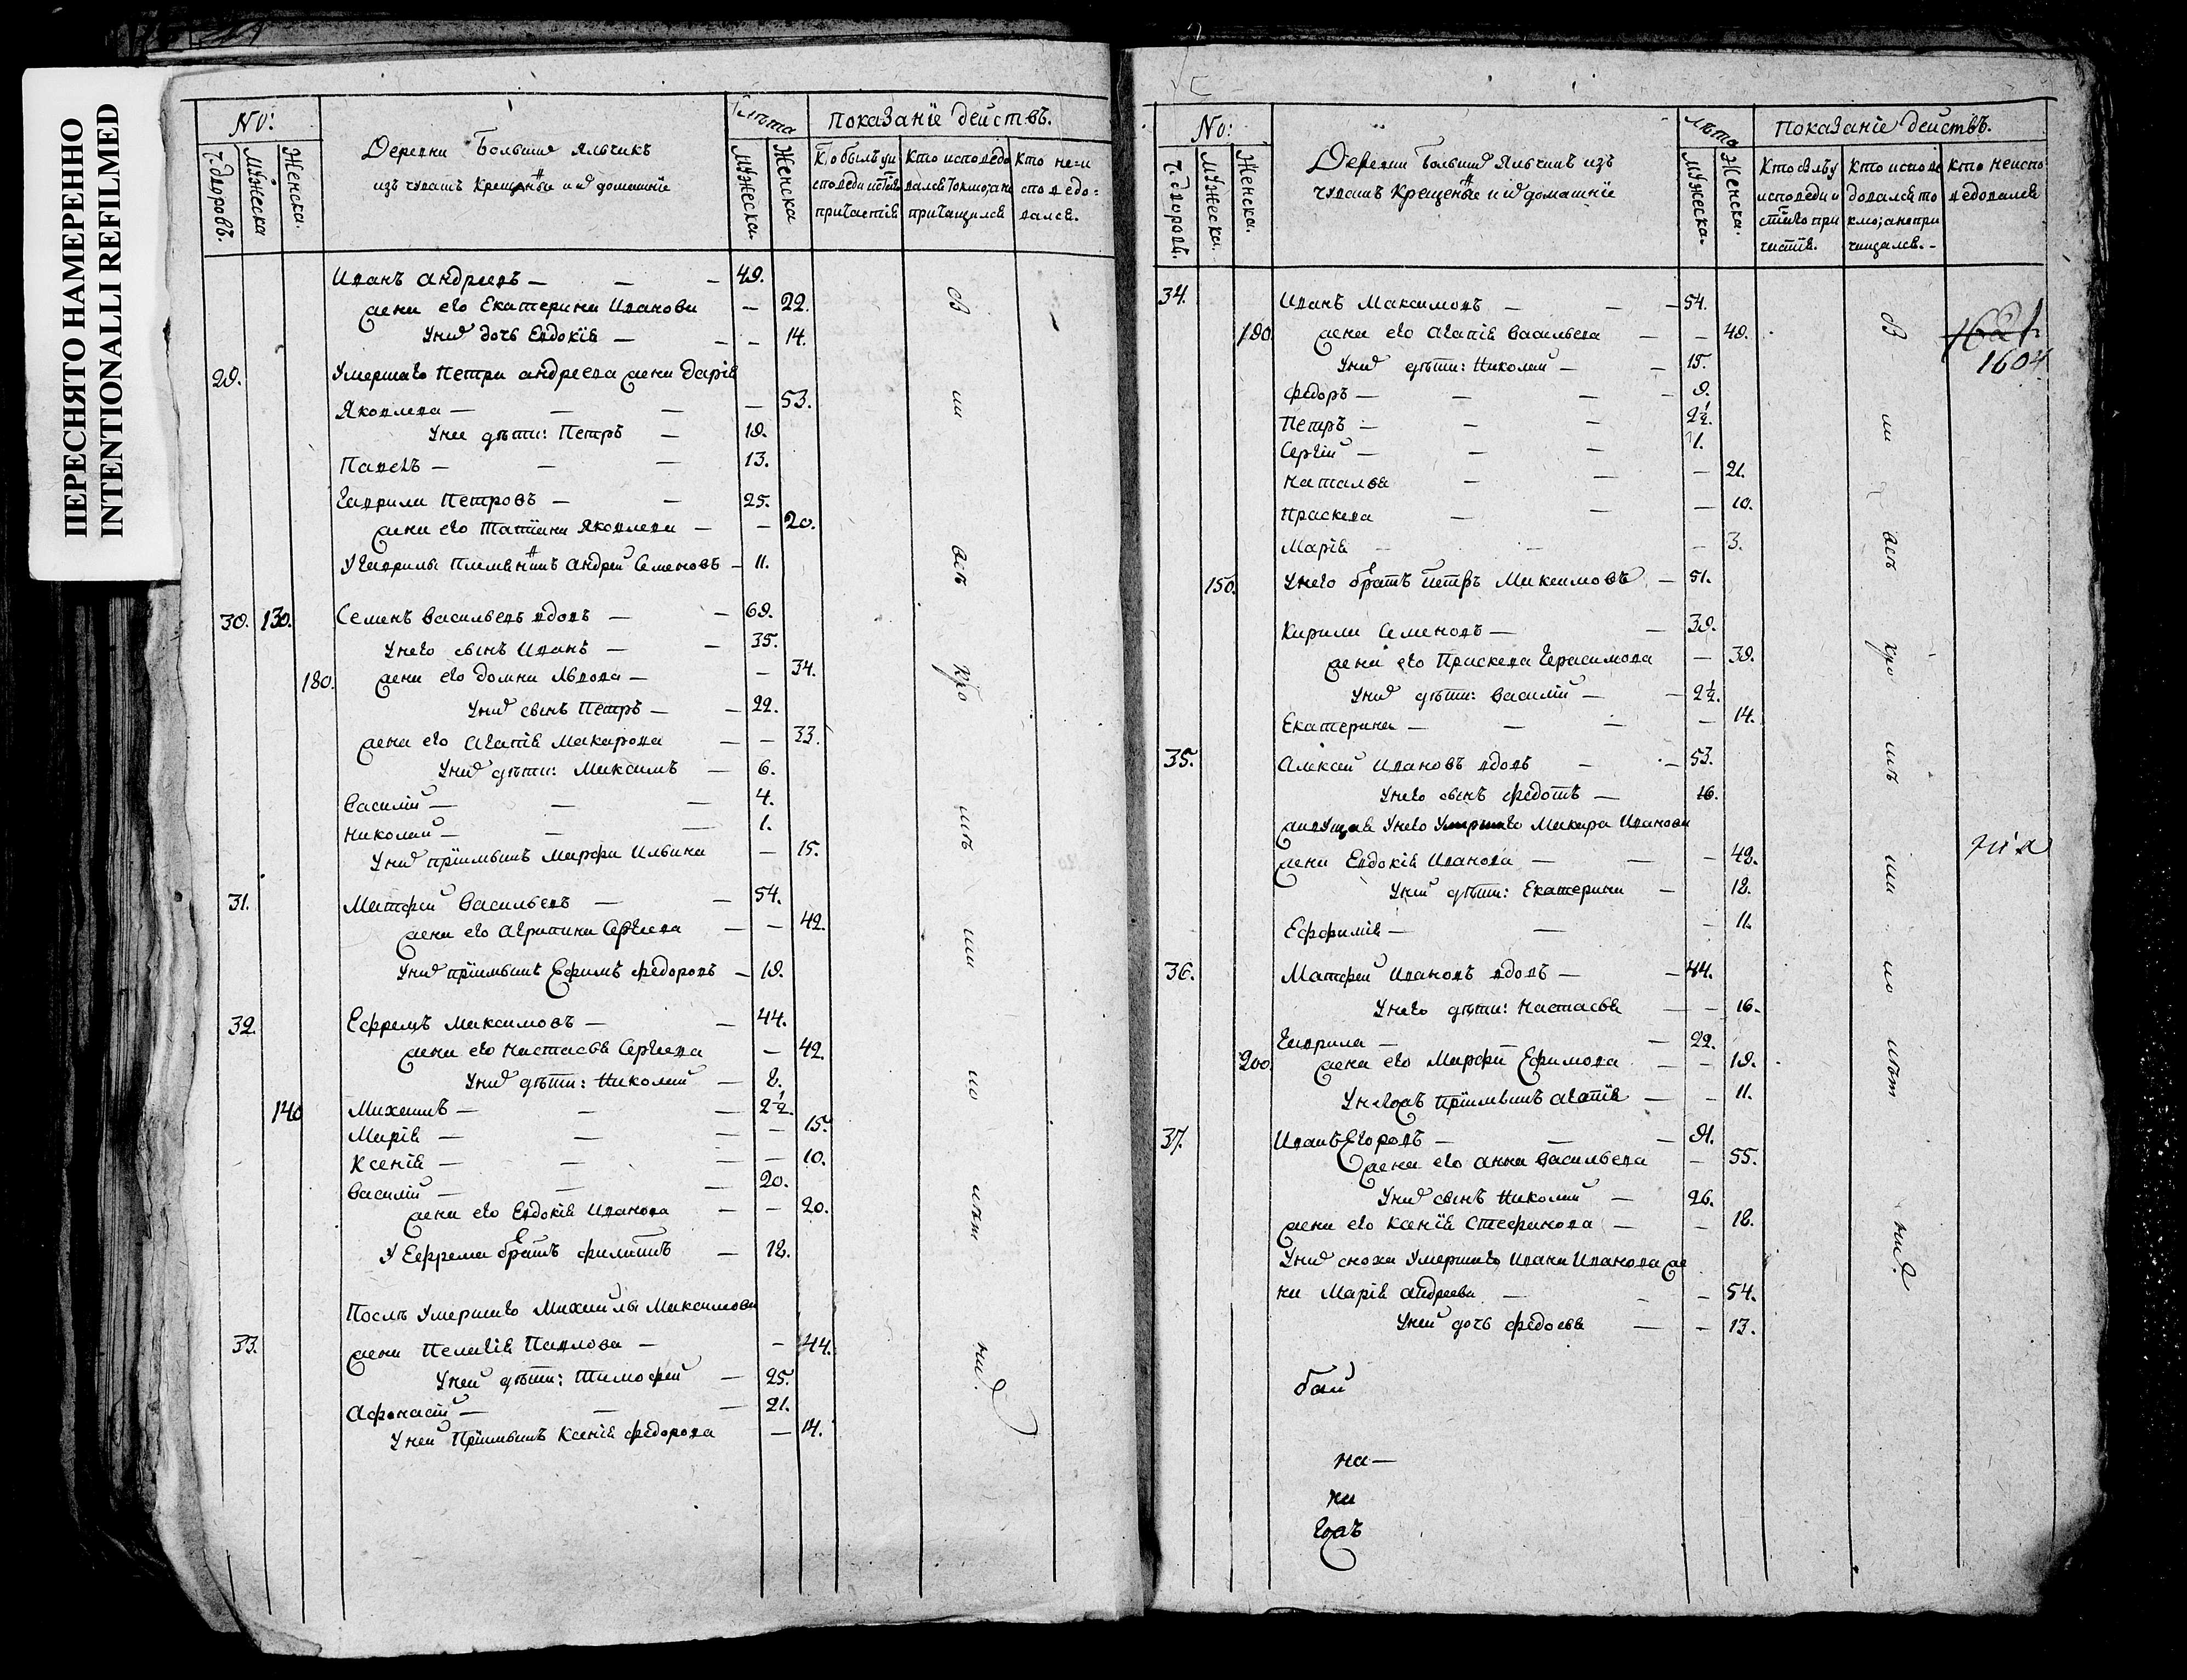 ПЕРЕСНЯТО НАМЕРЕННО
INTENTIONALLI REFILMED
No:
Лѣта
Показанїе действъ.
Деревни Большия Яльчикъ
изъ чувашъ Крещеные и ихъ домашнїе
Дворовъ.
Мужеска
Женска.
Мужеска.
Женска
Кто былъ у и
споведи и с̃таго
причастїя
Кто исповедо
вался токмо; а не
причащался
Кто не и
споведо=
вался.
Иванъ Андреевъ — 49.
жена его Екатерина Иванова — 22.
У них дочь Евдокїя — 14.
29. Умершаго Петра Андреева жена Дарїя
Яковлева — 53.
У нее дѣти: Петръ — 19.
Павелъ — 13.
Гаврила Петровъ — 25.
жена его Татїяна Яковлева — 20.
У Гаврилы племянникъ Андрей Семеновъ — 11.
30. 130. Семенъ Васильевъ вдовъ — 69.
У него сынъ Иванъ — 35.
180. жена его Домна Львова — 34.
У них сынъ Петръ — 22.
жена его Агапїя Макарова — 33.
У них дѣти: Максимъ — 6.
Василїй — 4.
Николай — 1.
У них прїимышъ Марфа Ильина — 15.
31. Матфей Васильевъ — 54.
жена его Агрипина Сергеева — 42.
У них прїимышъ Ефимъ Федоровъ — 19.
32. Ефремъ Максимовъ — 44.
жена его Настасья Сергеева — 42.
У них дѣти: Николай — 8.
140 Михаилъ — 2½.
Марїя — 15.
Ксенїя — 10.
Василїй — 20.
жена его Евдокїя Иванова — 20.
У Ефрема братъ Филиппъ — 18.
Послѣ умершаго Михаилы Максимова
33. жена Пелагїя Павлова — 44.
У ней дѣти: Тимофей — 25.
Афонасїй — 21.
У ней прїимышъ Ксенїя Федорова — 14.
No:
лѣта
Показанїе действъ.
Деревни Большия Яльчикъ изъ
чувашъ Крещеные и их домашнїе
Дворовъ.
Мужеска.
Женска.
Мужеска.
Женска.
Кто былъ у
исповеди и
с̃таго при
частїя.
Кто испове
довался то
кмо; а не при
чащался.-
Кто неиспо
ведовался
34. Иванъ Максимовъ — 54.
190. жена его Агапїя Васильева — 49.
У них дѣти: Николай — 15.
Федоръ — 9.
Петръ — 2½.
Сергїй — 1.
Наталья — 21.
Праскева — 10.
Марїя — 3.
150. У него братъ Петръ Максимовъ — 51.
Кирила Семеновъ — 39.
жена его Праскева Герасимова — 39.
У них дѣти: Василїй — 2½.
Екатерина — 14.
35. Алексей Ивановъ вдовъ — 53.
У него сынъ Федотъ — 16.
живущая у него умершаго Макара Иванова
жена Евдокїя Иванова — 48.
У ней дѣти: Екатерина — 18.
Ефимїя — 11.
36. Матфей Ивановъ вдовъ — 44.
У него дѣти: Настасья — 16.
Гаврила — 22.
200. жена его Марфа Ефимова — 19.
У негожъ прїимышъ Агапїя — 11.
37. Иванъ Егоровъ —
жена его Анна Васильева — 55.
У них сынъ Николай — 26.
жена его Ксенїя Стефанова — 18.
У них сноха умершаго Ивана Иванова же
на Марїя Андреева — 54.
У ней дочь Федосья — 13.
1604
бай
на—
ка